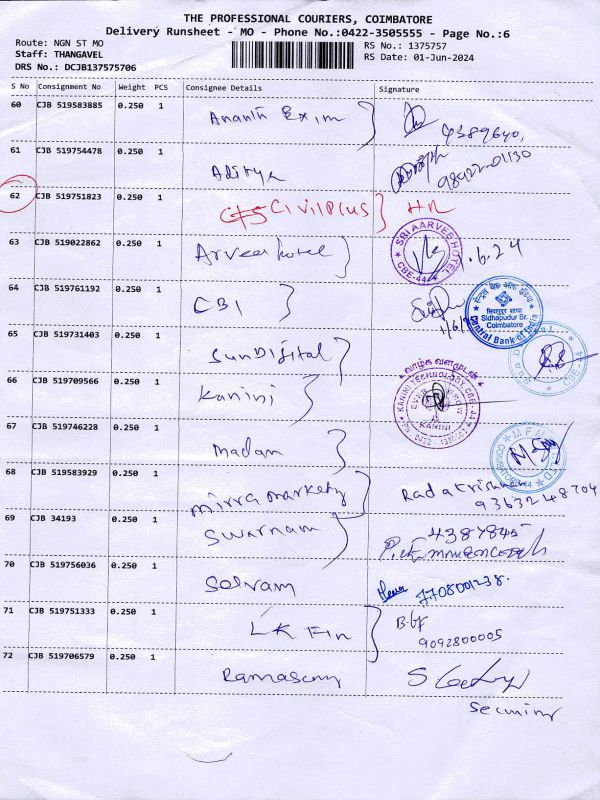 THE PROFESSIONAL COURIERS, COIMBATORE
Delivery Runsheet - MO - Phone No.:0422-3505555 - Page No.:6
Route: NGN ST MO
RS No.: 1375757
Staff: THANGAVEL
RS Date: 01-Jun-2024
DRS No.: DCJB137575706
S No Consignment No Weight PCS Consignee Details Signature
60 CJB 519583885 0.250 1 Ananth Exim
61 CJB 519754478 0.250 1 Aditya
62 CJB 519751823 0.250 1 Civilplus HR
63 CJB 519022862 0.250 1 Arvee hotel
SRI AARVEE HOTEL
CBE-44
64 CJB 519761192 0.250 1 CBI
Sidhapudur Br.
Coimbatore
Central Bank of India
65 CJB 519731403 0.250 1 SunDigital
66 CJB 519709566 0.250 1 Kanini
வாழ்க வளமுடன்
KANINI TECHNOLOGY, CBE-44
KANINI
67 CJB 519746228 0.250 1 madan
68 CJB 519583929 0.250 1 mirra markety Radakrishnan
9363248704
69 CJB 34193 0.250 1 Swarnam
70 CJB 519756036 0.250 1 Selvam 7708001238.
71 CJB 519751333 0.250 1 LK Fin
9092800005
72 CJB 519706579 0.250 1 Ramasamy